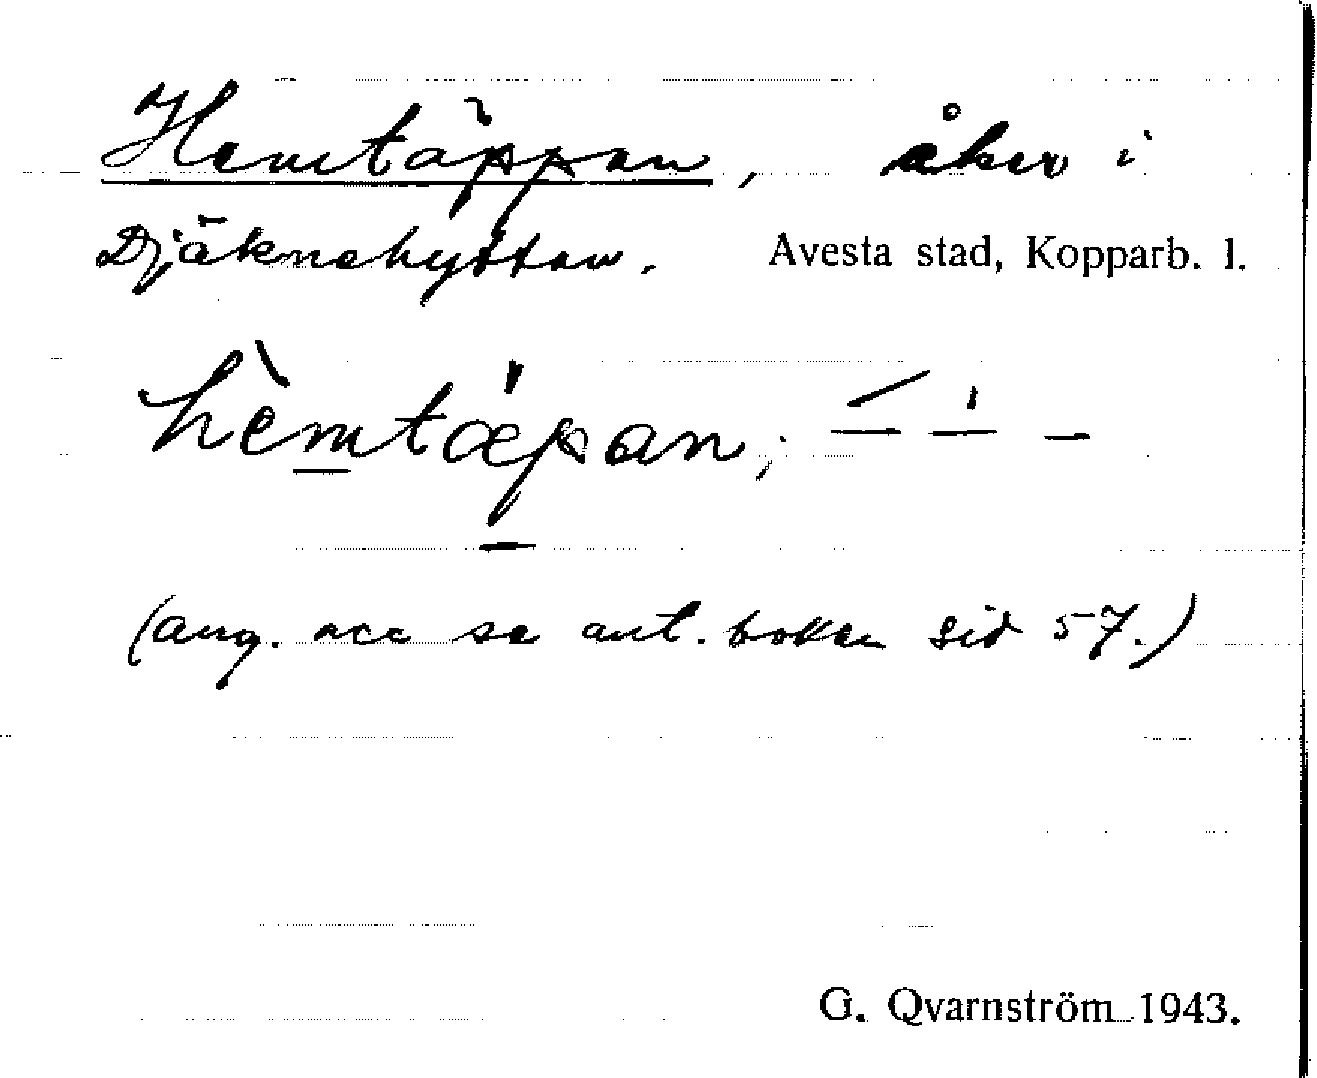 Hemtäppan, åker i
Djäknehyttan. Avesta stad, Kopparb. l.
hèmtæ̍pan;
(ang. acc se ant. boken sid 57.)
G. Qvarnström 1943.